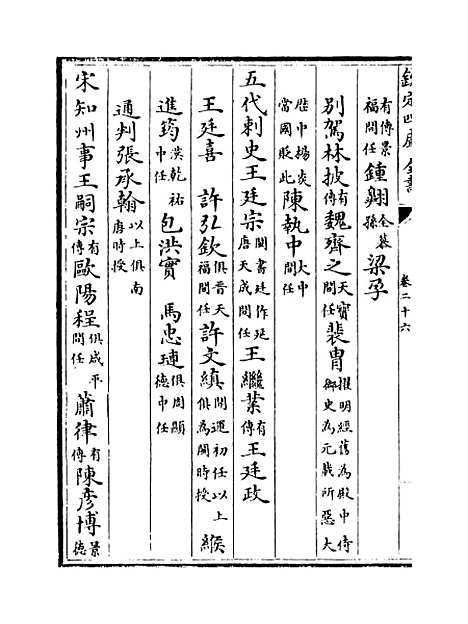 欽定四庫全書
卷二十六
有傳景福間任鍾翺全慕孫梁孚
别駕林披有傳魏齊之天寶間任裴胄擢明經舊為殿中侍御史為元載所惡大
厯中楊炎當國貶此陳執中大中間任
五代刺史王廷宗閩書廷作延唐天成間任王繼業有傳王廷政
王廷喜　許弘欽俱晉天福間任許文縝開運初任以上俱為閩時授緱
進筠漢乾祐中任包洪實　馬忠璉俱周顯德中任
通判張承翰以上俱南唐時授
宋知州事王嗣宗有傳歐陽程俱咸平間任蕭律有傳陳彦博景德